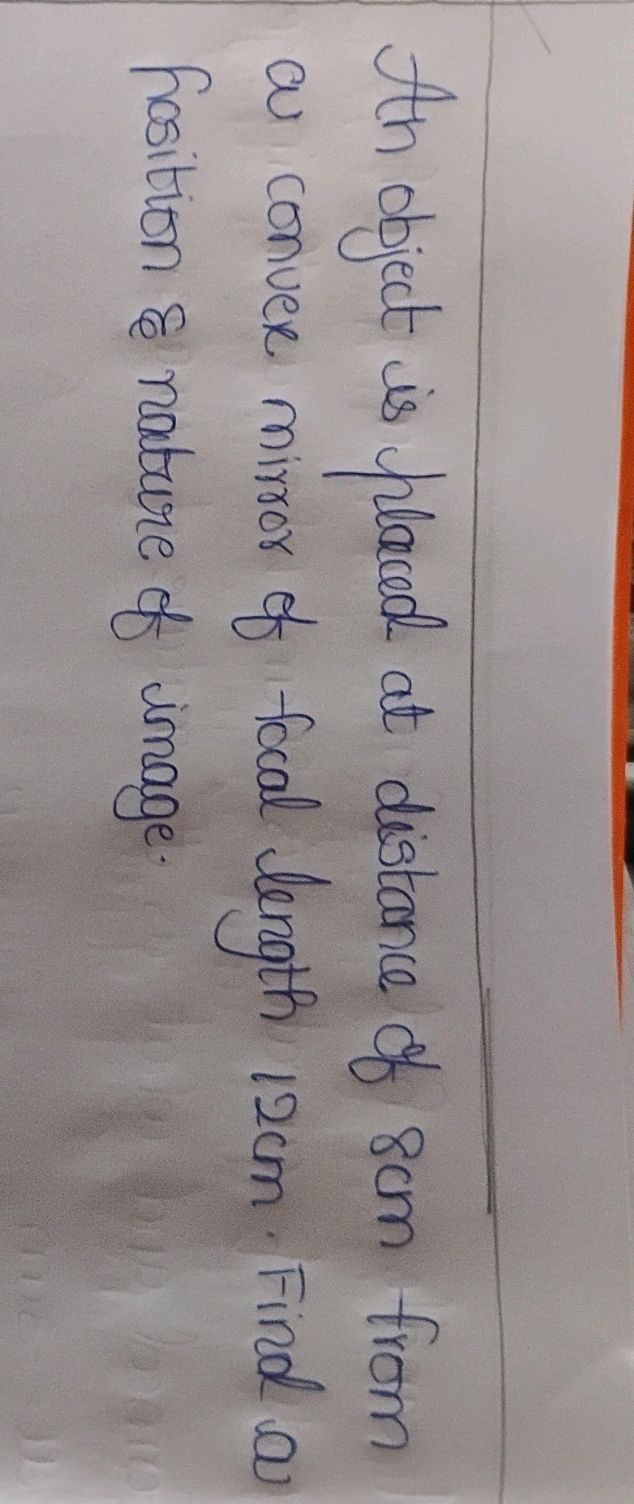 An object is placed at distance of 8cm from
a convex mirror of focal length 12cm. Find a
position & nature of image.